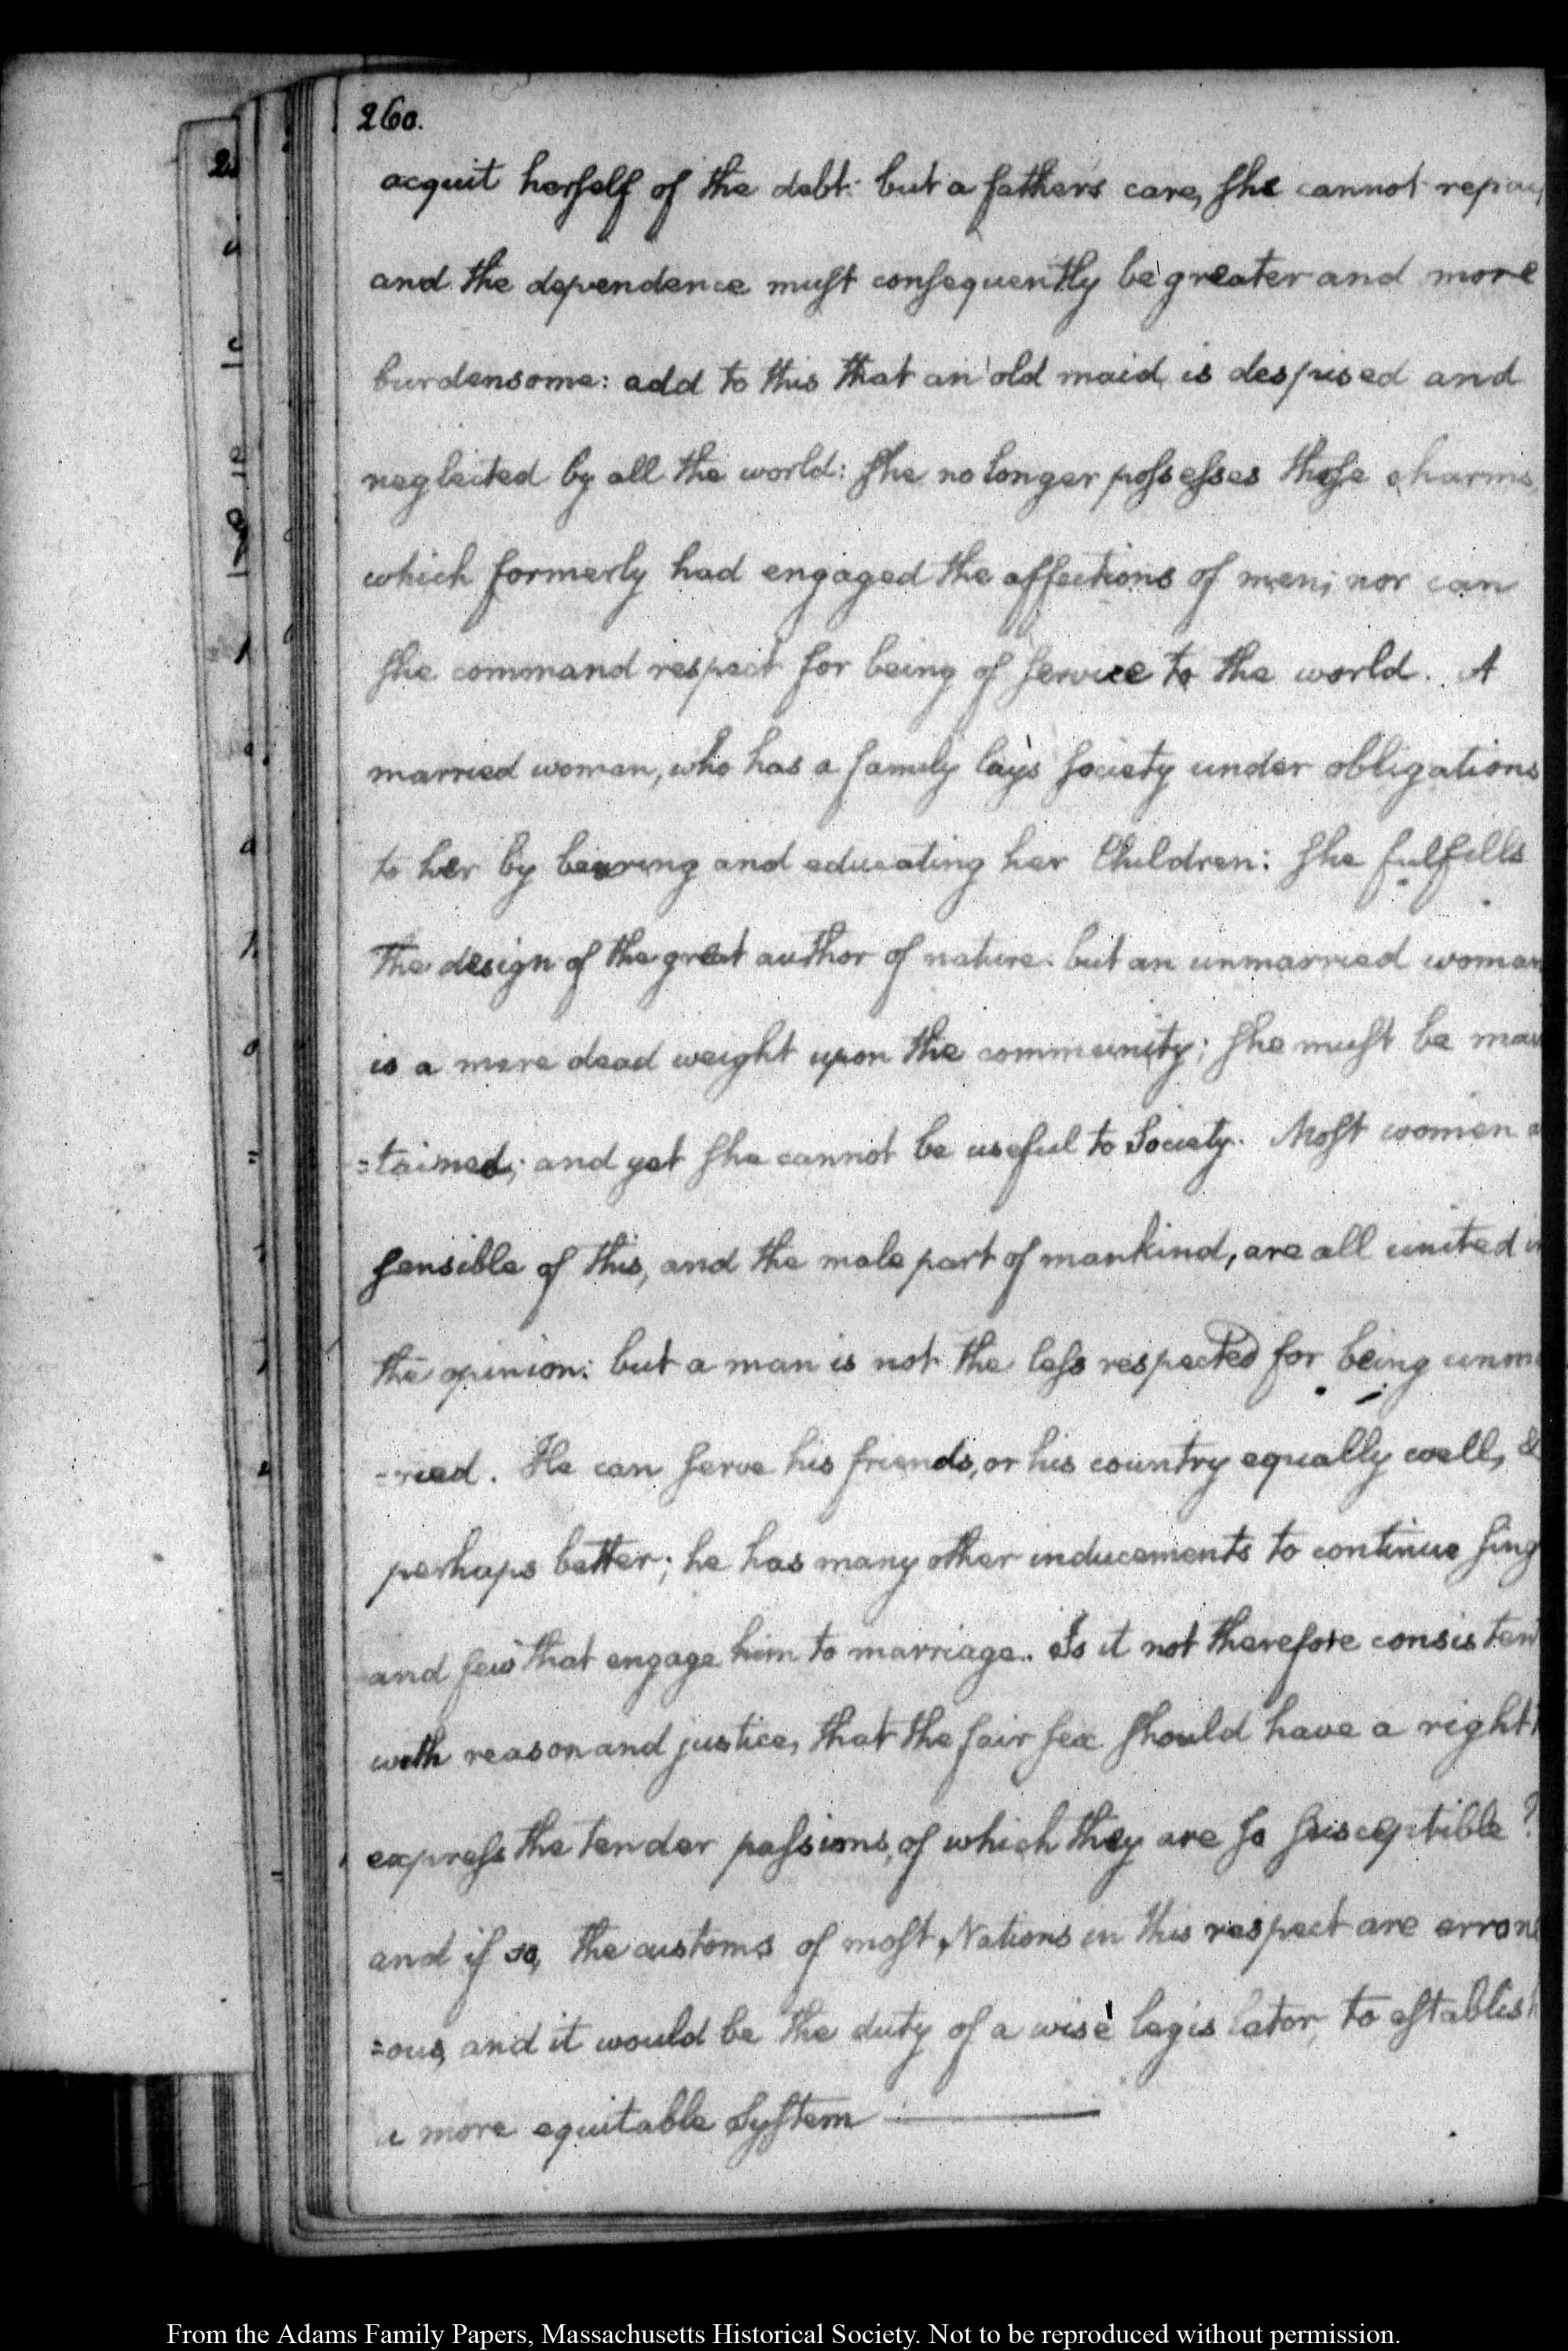 260.
acquit herself of the debt: but a fathers care, she cannot repay
and the dependence must consequently be greater and more
burdensome: add to this that an old maid is despised and
neglected by all the world: she no longer possesses those charms,
which formerly had engaged the affections of men; nor can
she command respect for being of service to the world. A
married woman, who has a family lays society under obligations
to her by bearing and educating her Children: she fulfills
the design of the great author of nature: but an unmarried woman
is a mere dead weight upon the community; she must be main
=tained; and yet she cannot be useful to Society. Most women a
sensible of this, and the male part of mankind, are all united in
the opinion: but a man is not the less respected for being unm
-ried. He can serve his friends, or his country equally well, &
perhaps better; he has many other inducements to continue sing
and few that engage him to marriage. Is it not therefore consistent
with reason and justice, that the fair sex should have a right t
express the tender passions, of which they are so susceptible?
and if so, the customs of most Nations in this respect are errone
=ous, and it would be the duty of a wise legislator, to establish
a more equitable System
From the Adams Family Papers, Massachusetts Historical Society. Not to be reproduced without permission.